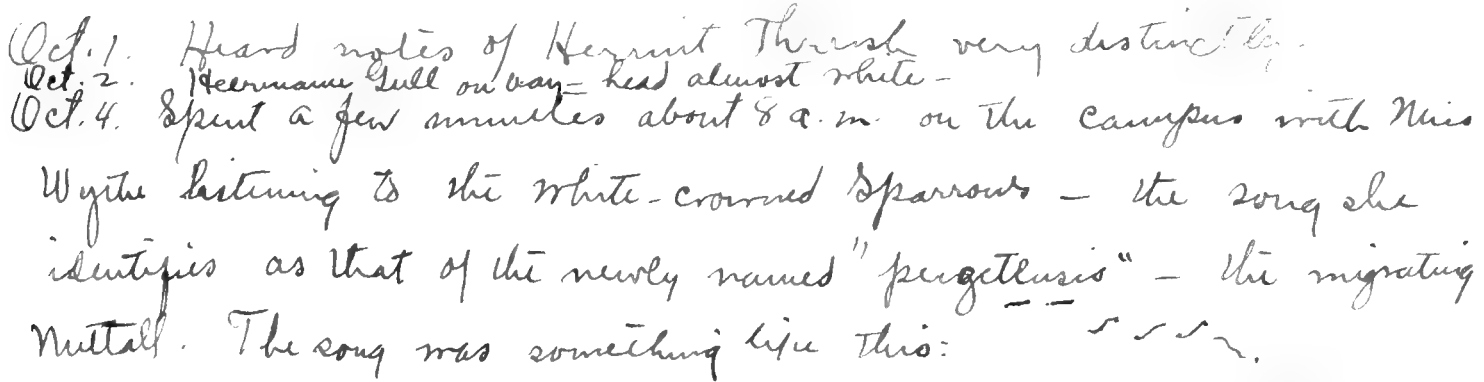 Oct. 1. Heard notes of Hermit Thrush very distinctly.
Oct. 2. Heermann Gull on bay = head almost white -
Oct. 4. Spent a few minutes about 8 a.m. on the campus with Miss
Wythe listening to the White-crowned Sparrows - the song she
identifies as that of the newly named "pugetensis" - the migrating
Nuttall. The song was something like this: